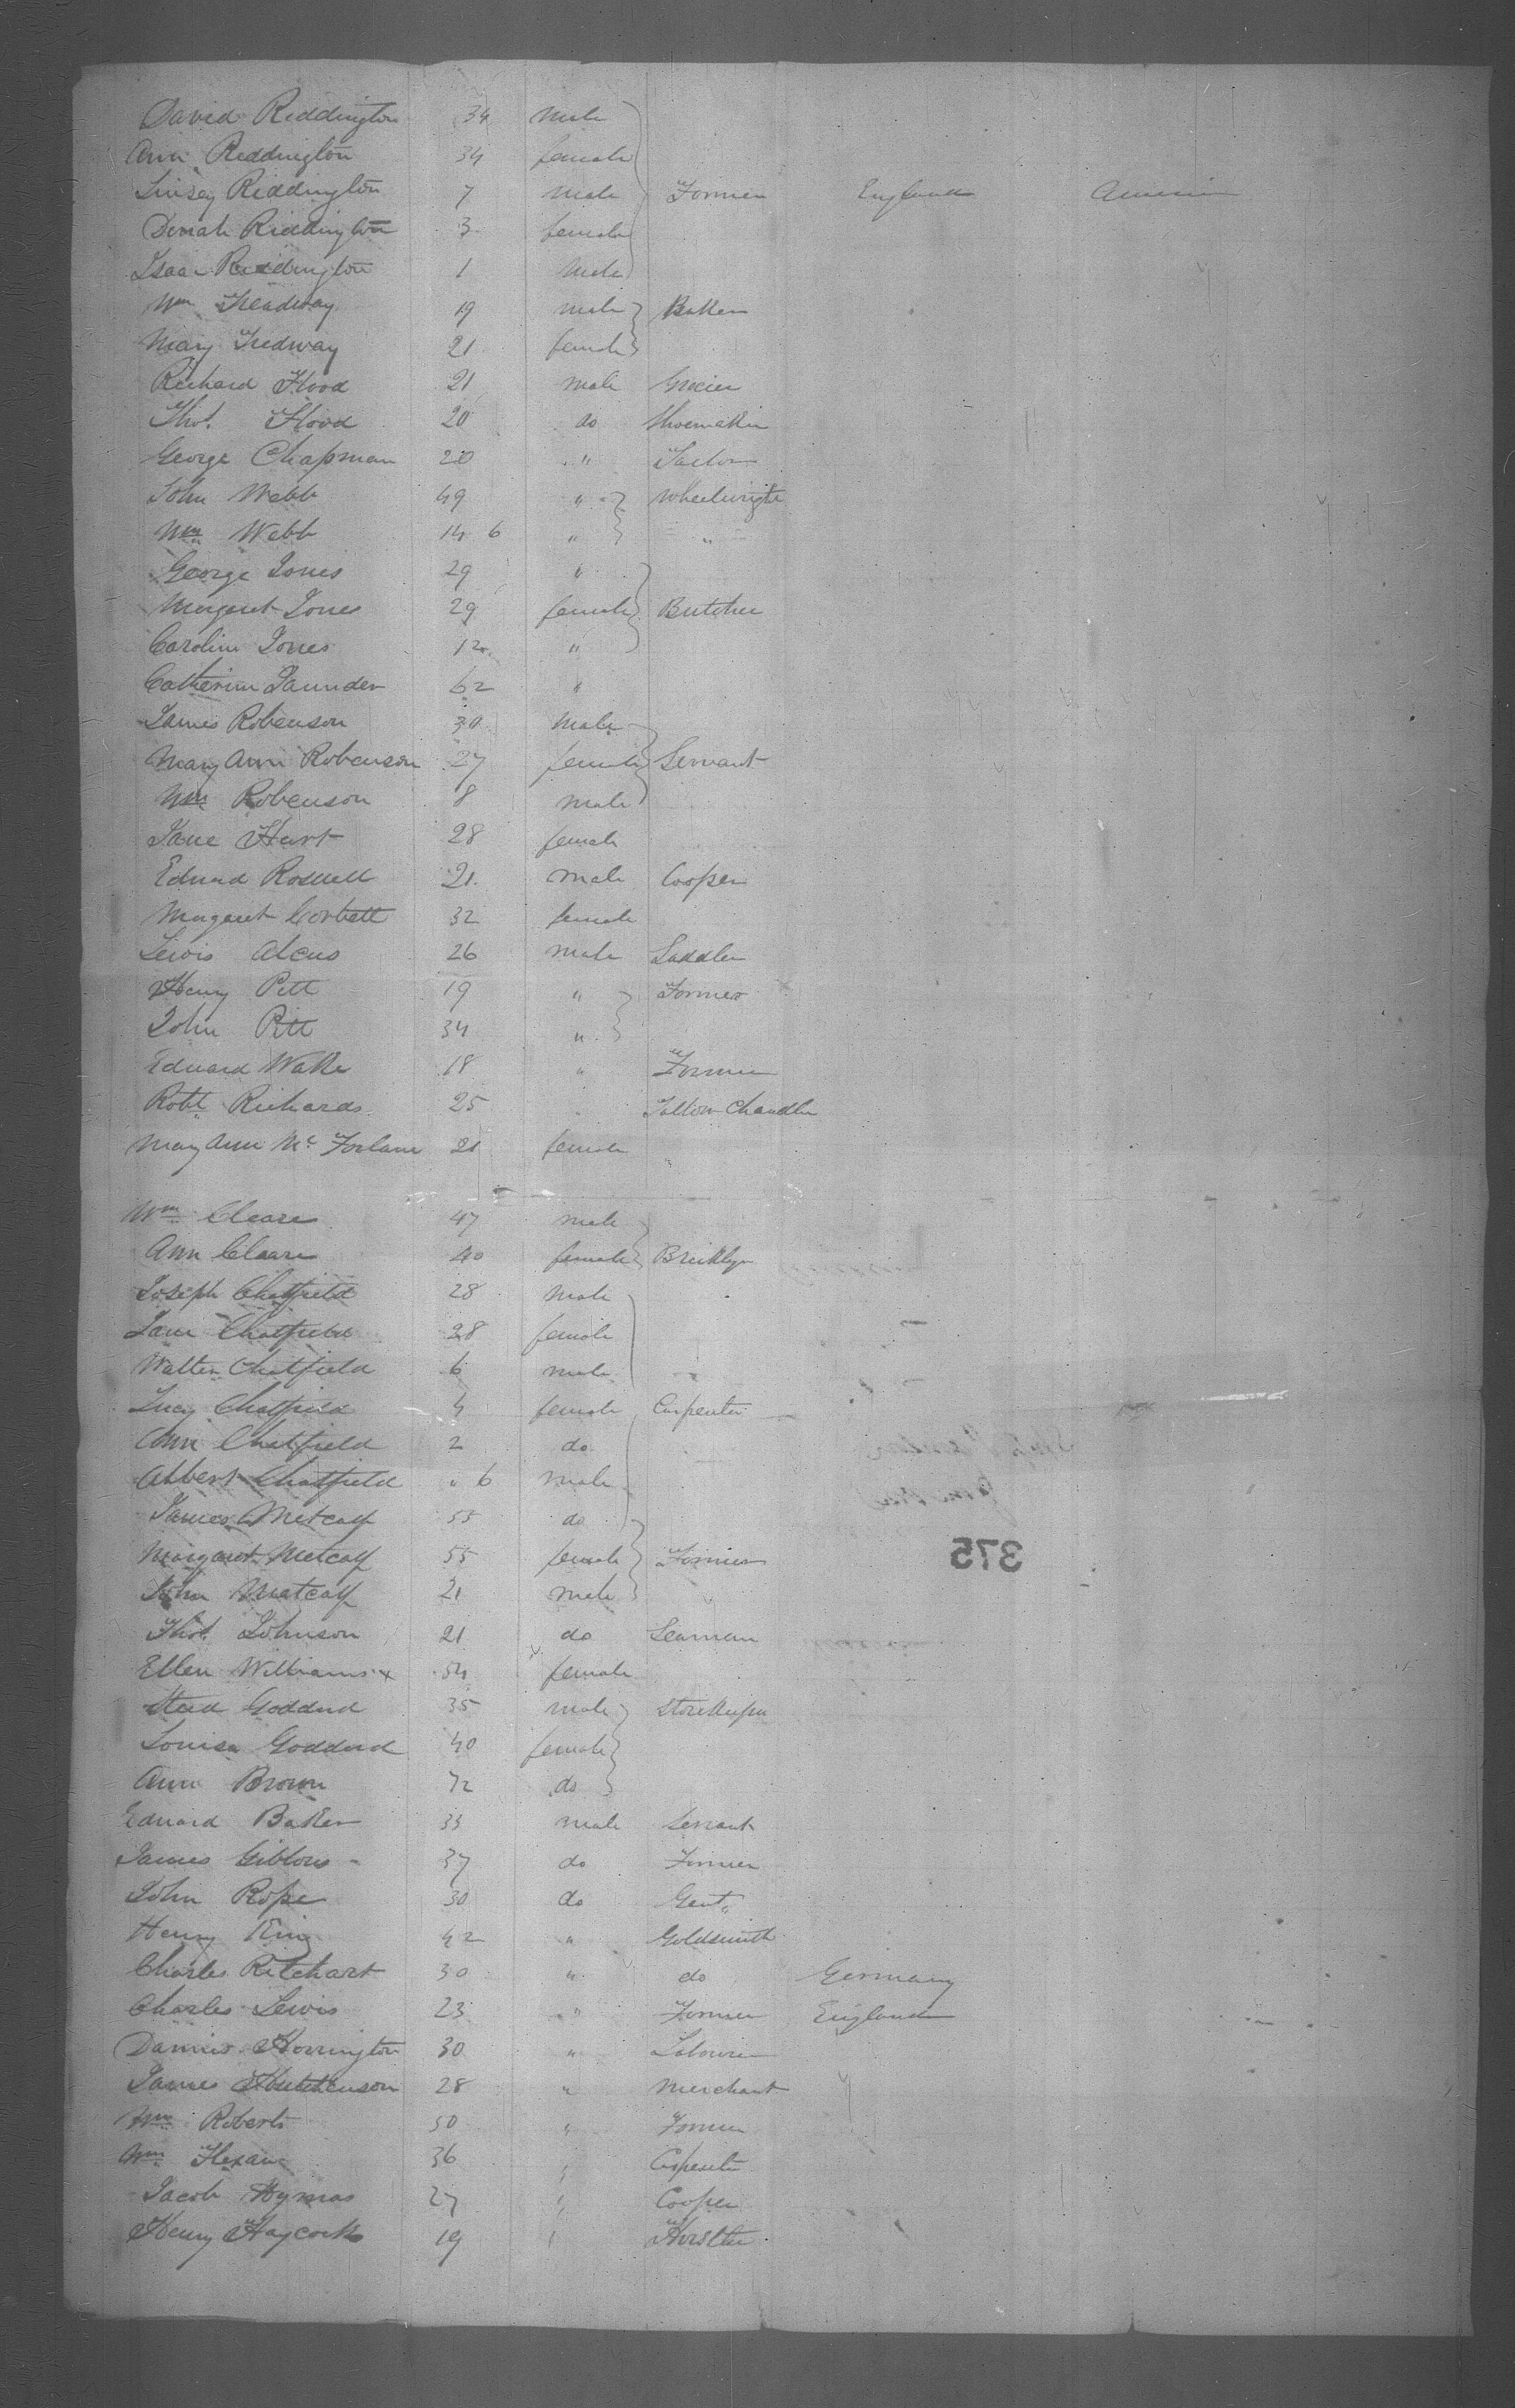 David Riddington 34 male
Ann Riddington 34 female
Linsey Riddington 7 male Farmer England America
Dinah Riddington 3 female
Isaac Riddington 1 male
Wm Treadway 19 male Baker
Mary Tredway 21 female
Richard Flood 21 male Grocier
Thos. Flood 20 do Shoemaker
George Chapman 20 " Tailor
John Webb 49 " Wheelwright
Wm Webb 14 6 " "
George Jones 29 "
Margaret Jones 29 female Butcher
Caroline Jones 12 "
Catherine Saunder 62 "
James Robenson 30 male
Mary Ann Robenson 27 female Servant
Wm Robenson 8 male
Jane Hart 28 female
Edward Rosuell 21 male Cooper
Margaret Corbett 32 female
Lewis Alcus 26 male Saddler
Henry Pitt 19 " Farmer
John Pitt 34 "
Edward Wake 18 " Farmer
Robt Richards 25 Tallow Chandler
Mary Ann Mc Farlane 21 female
Wm Cleare 47 male
Ann Cleare 40 female Bricklyer
Joseph Chatfield 28 male
Jane Chatfield 28 female
Walter Chatfield 6 male
Lucy Chatfield 4 female Carpenter
Ann Chatfield 2 do
Albert Chatfield " 6 male
James Metcalf 55 do
Margaret Metcalf 55 female Farmer
John Metcalf 21 male
375
Thos. Johnson 21 do Seaman
Ellen Williams x 54 x female
Goddard 35 male Storekeeper
Louisa Goddard 40 female
Ann Brown 72 do
Edward Baker 33 male Servant
James Gibbons 37 do Farmer
John Rope 30 do Gent"
Henry King 42 " Goldsmith
Charles Ritchart 30 " do Germany
Charles Lewis 23 " Farmer England
Horrington 30 " Labourer
James Hutchenson 28 " Merchant
Wm Roberts 50 " Farmer
Wm 36 " Carpenter
Jacob Hymas 27 " Cooper
Henry Haycock 19 " Hostler